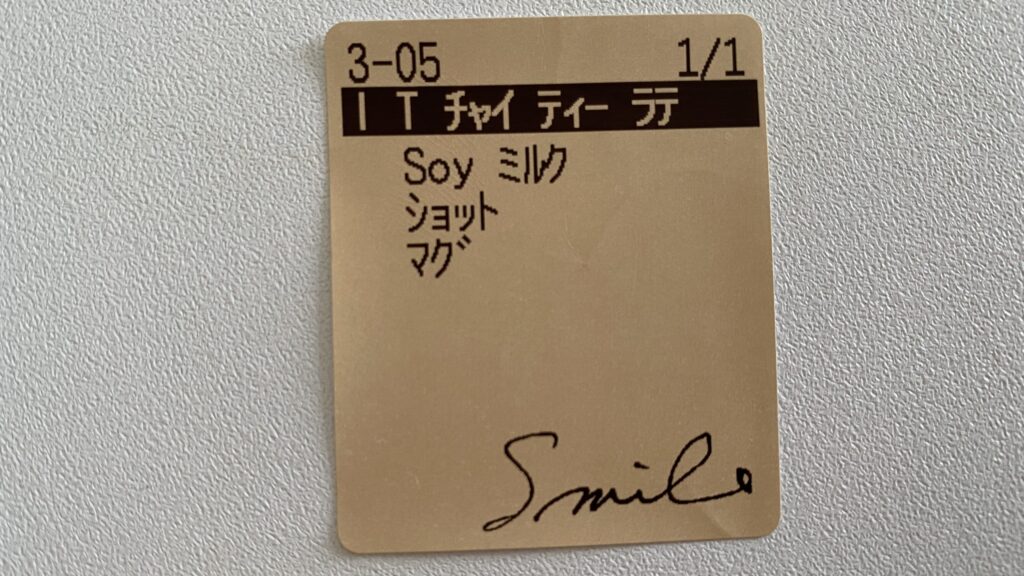 3-05 1/1
I T チャイ ティー ラテ
Soy ミルク
ショット
マグ
Smile